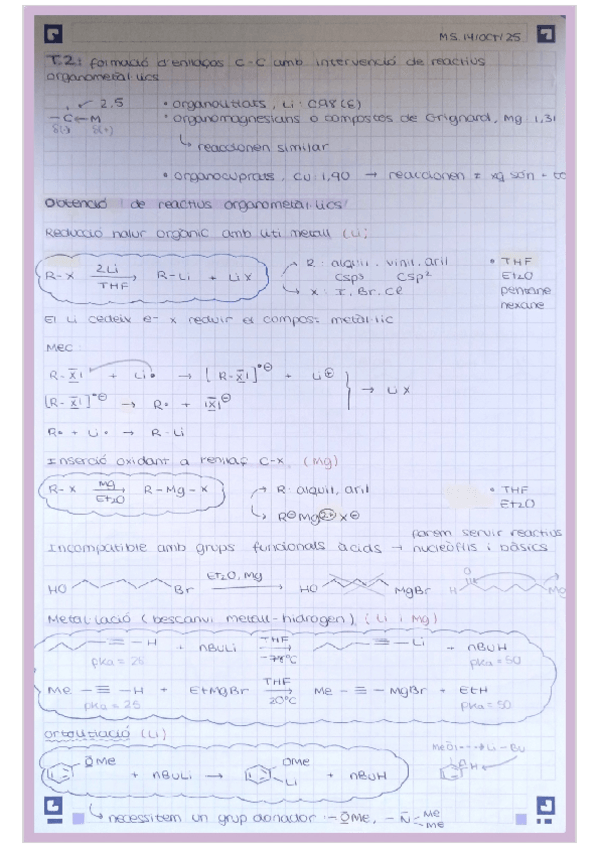 MS. 14/OCT/25
T.2: formació d'enllaços C-C amb intervenció de reactius
organometàl·lics
2,5 • organolitiats, Li: 0,98 (6)
-C←M • organomagnesians o compostos de Grignard, Mg 1,31
δ(-) δ(+)
↳ reaccionen similar
• organocuprats, Cu: 1,90 → reaccionen ≠ xq són
Obtenció de reactius organometàl·lics
Reducció halur orgànic amb liti metall (Li)
R-X 2Li THF R-Li + LiX
R: alquil, vinil, aril
Csp3 Csp2
X: I, Br, Cl
• THF
Et2O
pentane
hexane
El Li cedeix e- x reduir el compost metàl·lic
Mec:
R-X̄| + Li• → [R-X̄|]•⊖ + Li⊕
→ LiX
[R-X̄|]•⊖ → R• + |X̄|⊖
R• + Li• → R-Li
Inserció oxidant a l'enllaç C-X (Mg)
R-X Mg Et2O R-Mg-X
R: alquil, aril
R⊖ Mg2+ X⊖
• THF
Et2O
farem servir reactius
Incompatible amb grups funcionals àcids → nucleòfils i bàsics
HO Br Et2O, Mg HO MgBr H O Mg
Metal·lació (bescanvi metall-hidrogen) (Li i Mg)
≡-H + nBuLi THF -78°C ≡-Li + nBuH
pka = 25 pka = 50
Me-≡-H + EtMgBr THF 20°C Me-≡-MgBr + EtH
pka = 25 pka = 50
ortolitiació (Li)
ŌMe + nBuLi → OMe Li + nBuH
MeO Li-Bu
H
↳ necessitem un grup donador: -ŌMe, -N̄ Me Me